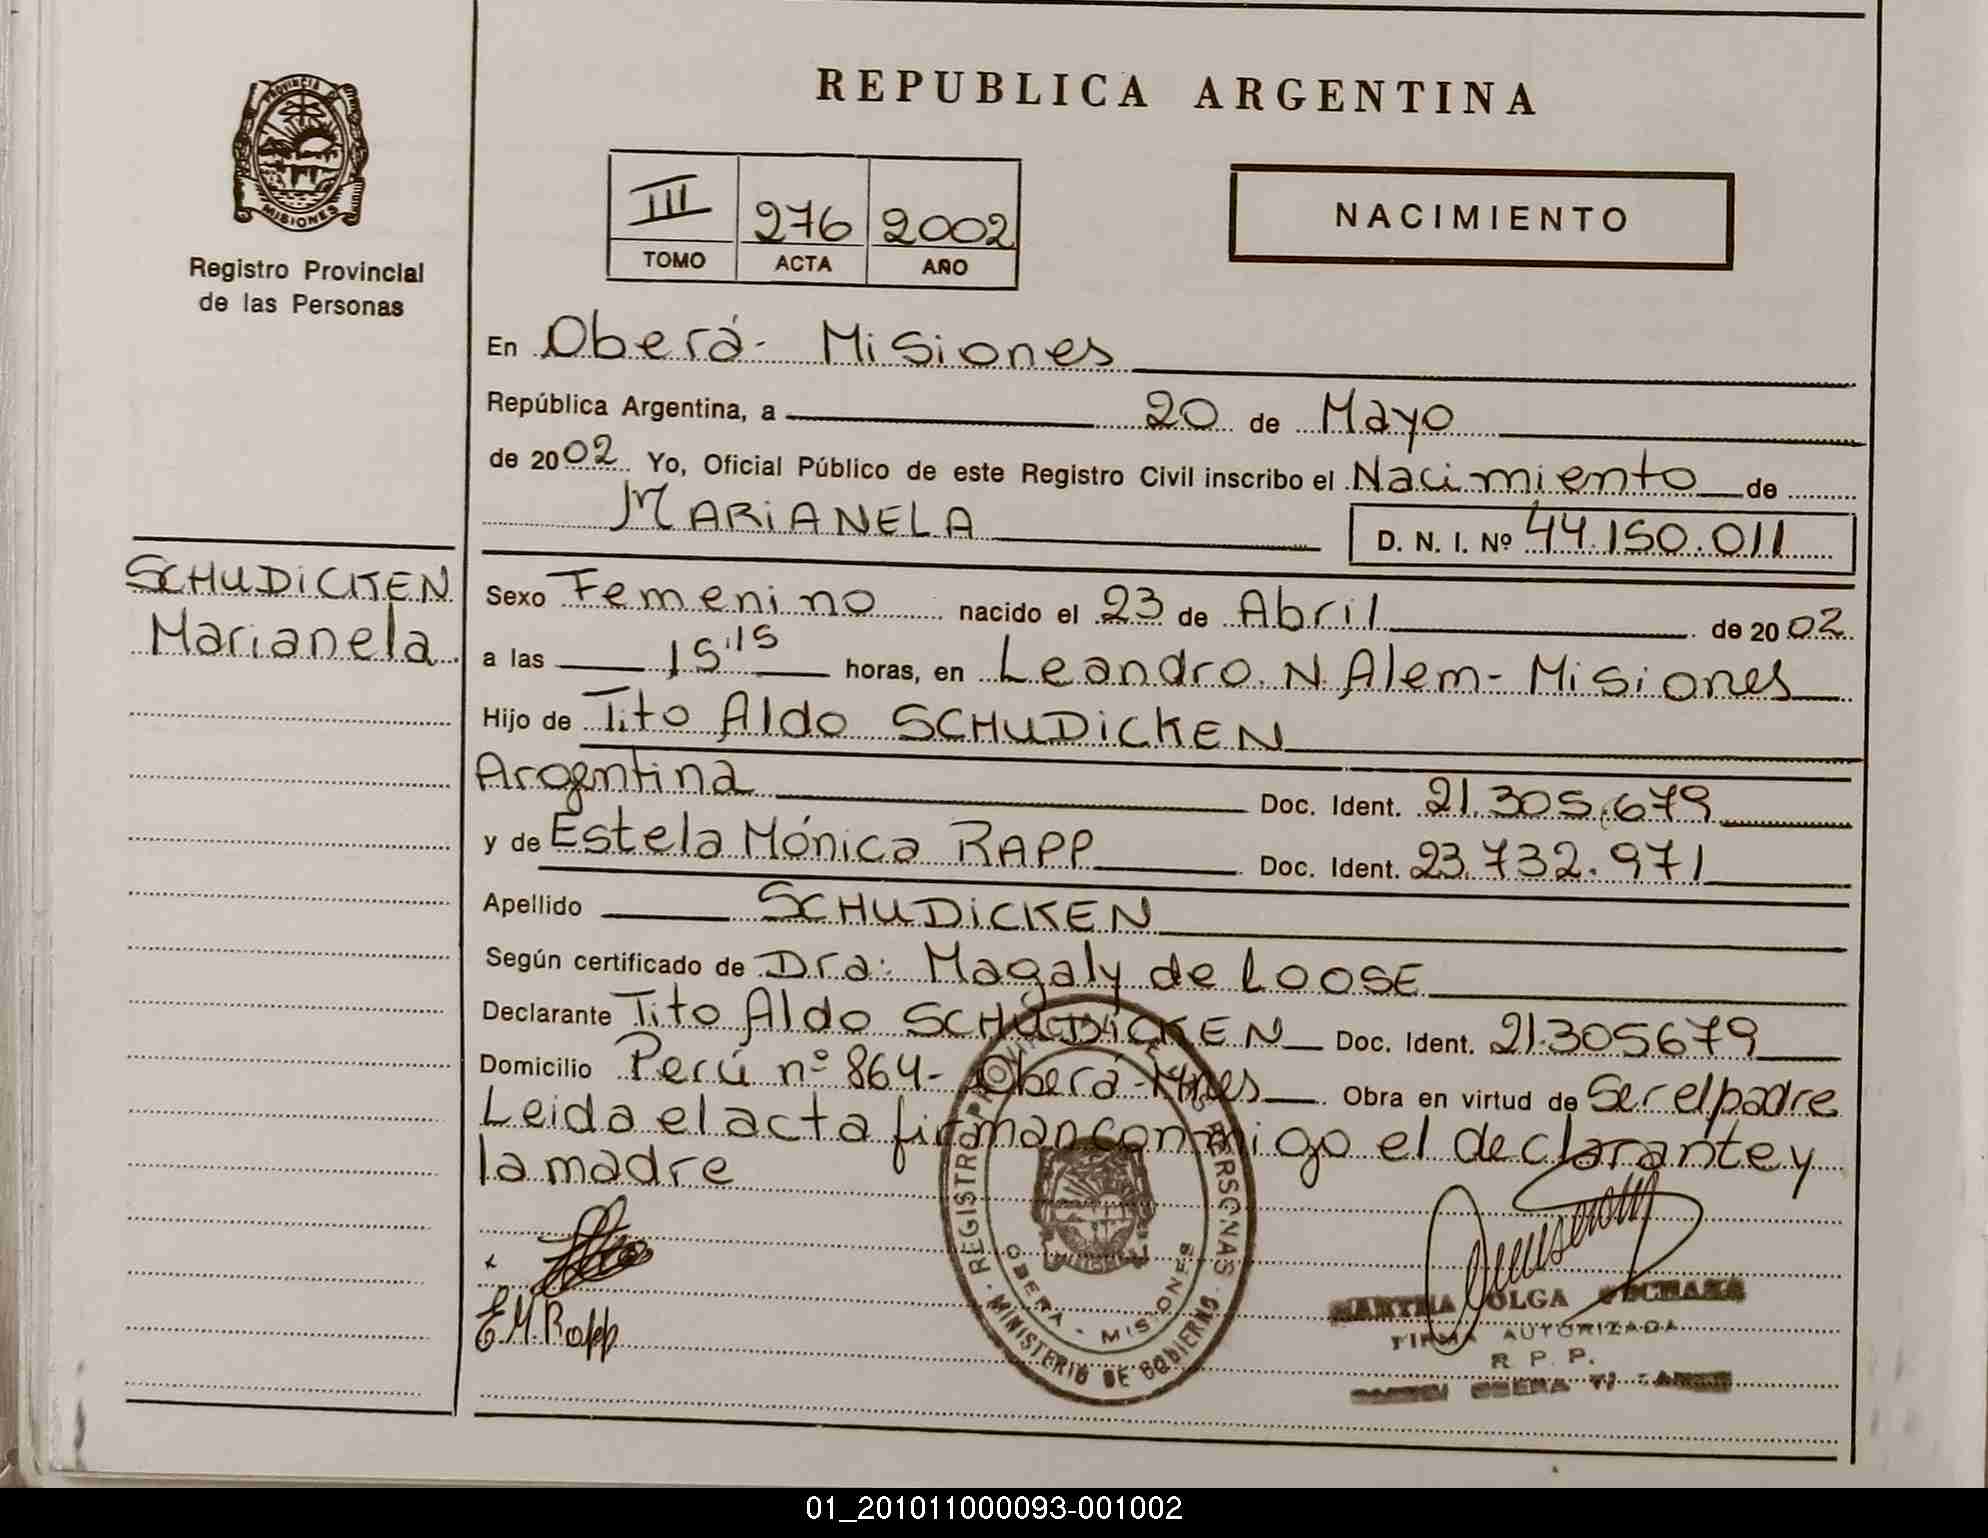 REPUBLICA ARGENTINA
PROVINCIA DE
MISIONES
Registro Provincial
de las Personas
III 276 2002
TOMO ACTA AÑO
NACIMIENTO
En Oberá - Misiones
República Argentina, a 20 de Mayo
de 2002 Yo, Oficial Público de este Registro Civil inscribo el Nacimiento de
MARIANELA D. N. I. Nº 44.150.011
SCHUDICKEN
Marianela
Sexo Femenino nacido el 23 de Abril de 2002
a las 15'15 horas, en Leandro. N. Alem - Misiones
Hijo de Tito Aldo SCHUDICKEN
Argentina Doc. Ident. 21.305.679
y de Estela Mónica RAPP Doc. Ident. 23.732.971
Apellido SCHUDICKEN
Según certificado de Dra: Magaly de LOOSE
Declarante Tito Aldo SCHUDICKEN Doc. Ident. 21.305679
Domicilio Perú nº 864 - Oberá - Mnes Obra en virtud de Ser el padre
Leida el acta firman conmigo el declarante y
la madre
E.M. Rapp
REGISTRO PROVINCIAL DE LAS PERSONAS
OBERA - MISIONES
MINISTERIO DE GOBIERNO
MARTHA OLGA
FIRMA AUTORIZADA
R. P. P.
01_201011000093-001002